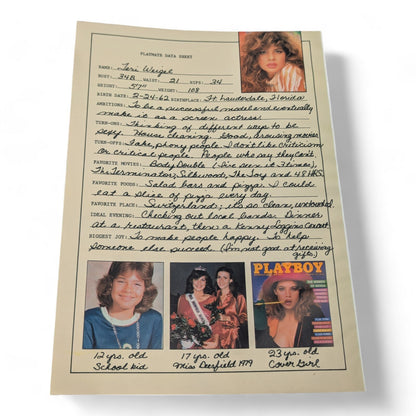 PLAYMATE DATA SHEET
NAME: Teri Weigel
BUST: 34B WAIST: 21 HIPS: 34
HEIGHT: 5'7" WEIGHT: 108
BIRTH DATE: 2-24-62 BIRTHPLACE: Ft. Lauderdale, Florida
AMBITIONS: To be a successful model and eventually
make it as a screen actress.
TURN-ONS: Thinking of different ways to be
sexy. House cleaning. Good, arousing movies.
TURN-OFFS: Fake, phony people. I don't like criticism
or critical people. People who say they can't.
FAVORITE MOVIES: Body Double (I've seen it 3 times),
The Terminator, Silkwood, The Toy and 48 HRS.
FAVORITE FOODS: Salad bars and pizza. I could
eat a slice of pizza every day.
FAVORITE PLACE: Switzerland; it's so clean, untouched.
IDEAL EVENING: Checking out local bands. Dinner
at a restaurant, then a Kenny Loggins Concert.
BIGGEST JOY: To make people happy. To help
someone else succeed. (I'm not good at receiving
gifts.)
PLAYBOY
12 yrs. old
School kid
17 yrs. old
Miss Deerfield 1979
23 yrs. old
Cover Girl